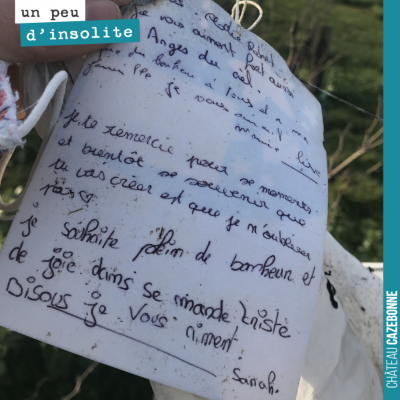 un peu
d'insolite
je vous aiment fort
Anges du ciel.
du bonheur à tous
je vous
Je te remercie pour se moments
et bientôt se souvenir que
tu vas créer est que je n'oublirer
pas
je souhaite plein de bonheur et
de joie dans se monde triste
Bisous je vous aiment.
Sarah.
CHÂTEAU CAZEBONNE